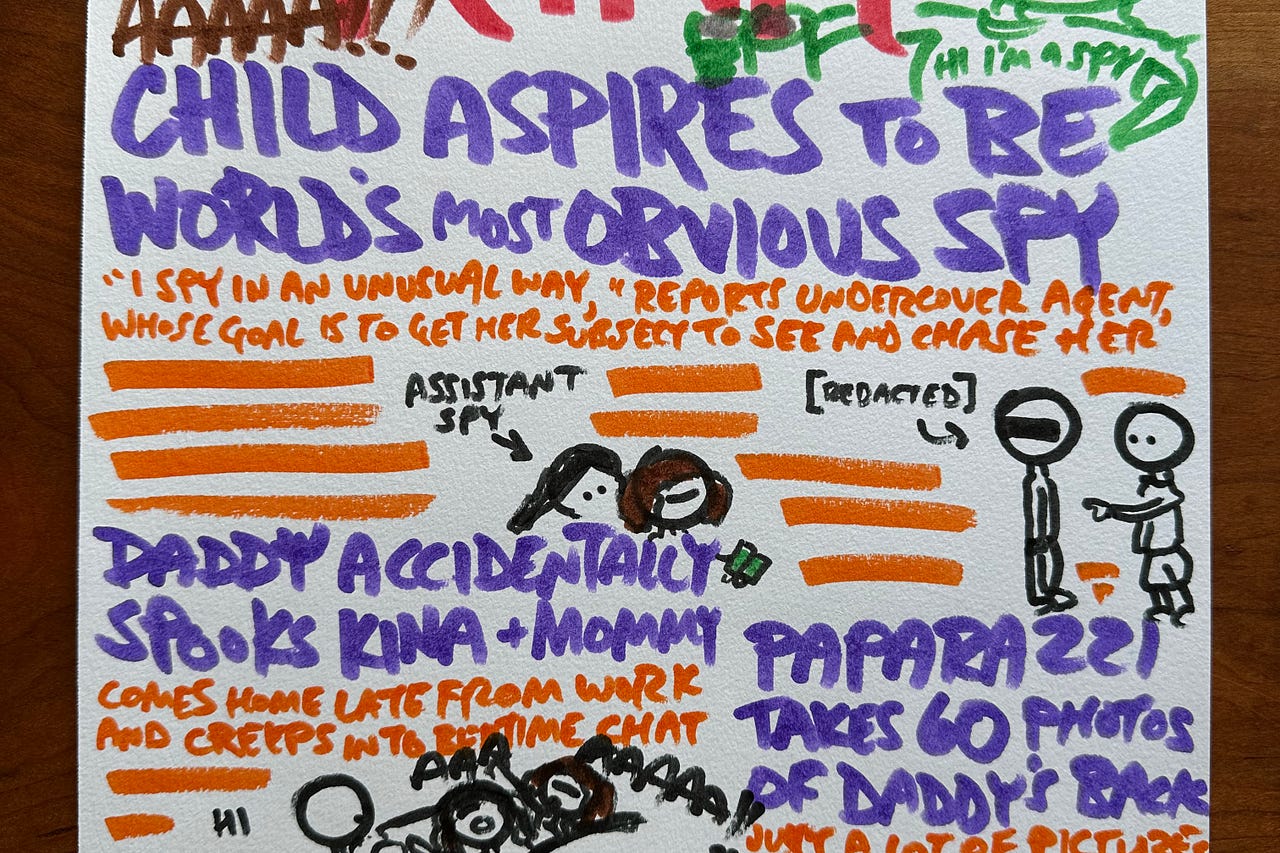 AAAAA!!
HI I'M A SPY
CHILD ASPIRES TO BE
WORLD'S MOST OBVIOUS SPY
"I SPY IN AN UNUSUAL WAY," REPORTS UNDERCOVER AGENT,
WHOSE GOAL IS TO GET HER SUBJECT TO SEE AND CHASE HER
ASSISTANT
SPY
[REDACTED]
DADDY ACCIDENTALLY
SPOOKS KINA + MOMMY
COMES HOME LATE FROM WORK
AND CREEPS INTO BEDTIME CHAT
HI
AAA
AAAAA!!
PAPARAZZI
TAKES 60 PHOTOS
OF DADDY'S BACK
JUST A LOT OF PICTURES